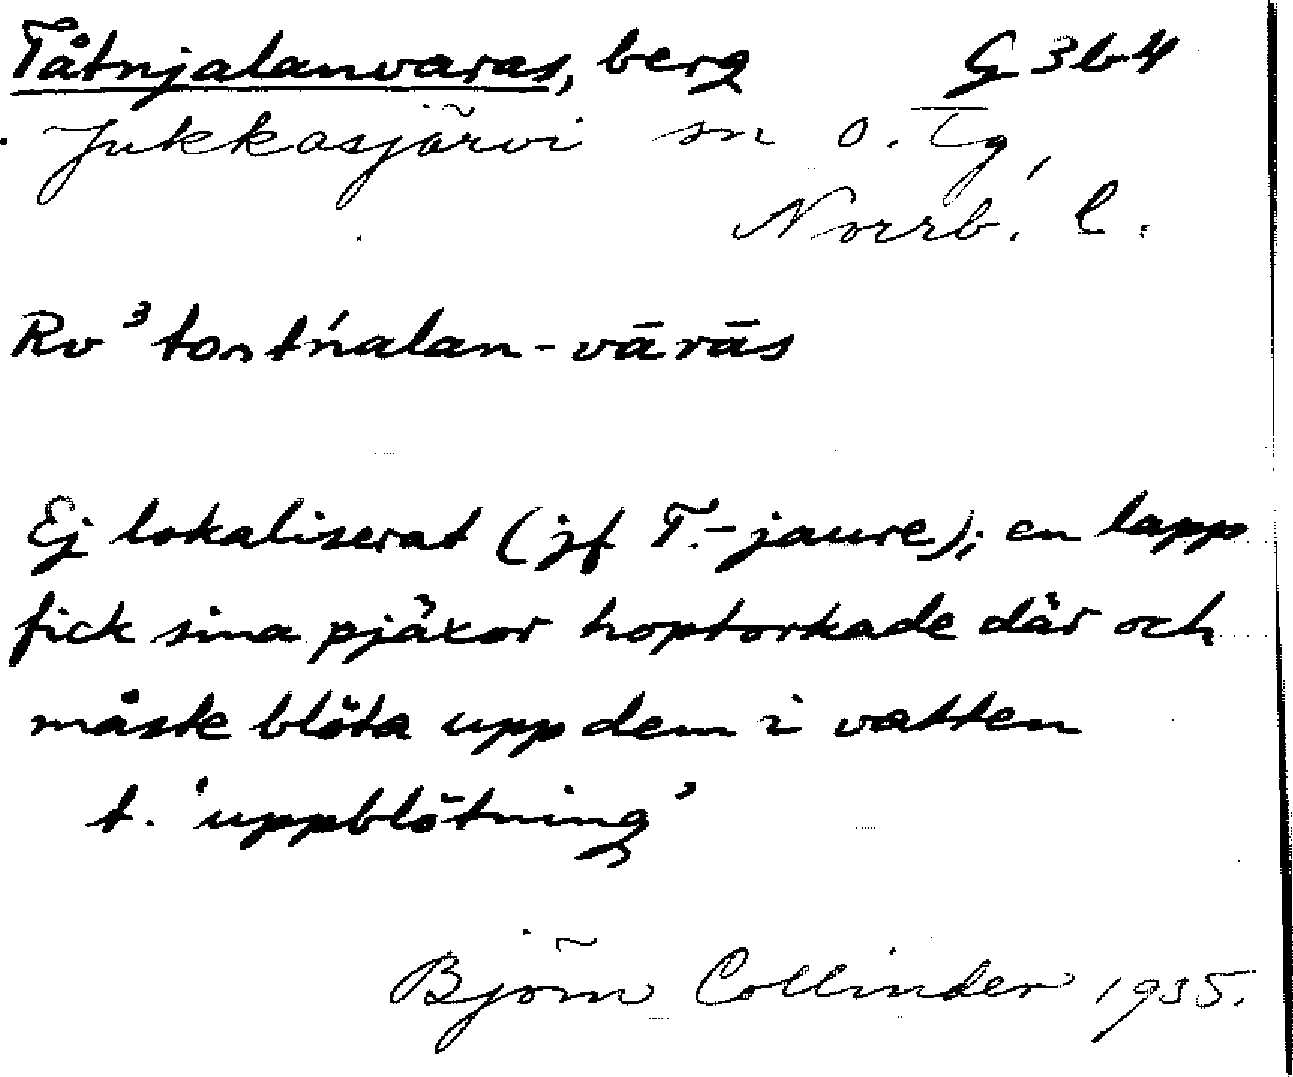 Tåtnjalanvaras, berg G 3b4
Jukkasjärvi sn o. Tg,
Norrb. l.
Rv ³toₙtńalan-vārās
Ej lokaliserat (jf T.-jaure); en lapp
fick sina pjäxor hoptorkade där och
måste blöta upp dem i vatten
t. 'uppblötning'
Björn Collinder 1935.